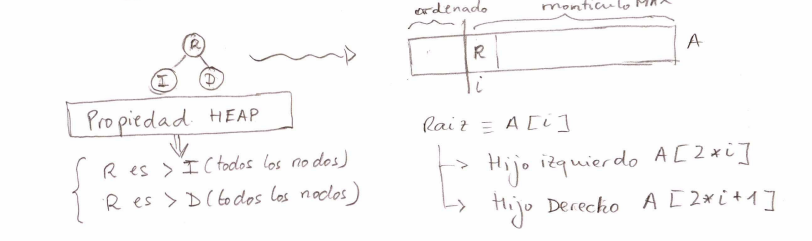 ordenado
montículo MAX
R
I
D
R
A
i
Propiedad HEAP
R es > I (todos los nodos)
R es > D (todos los nodos)
Raiz ≡ A [i]
Hijo izquierdo A [2*i]
Hijo Derecho A [2*i+1]